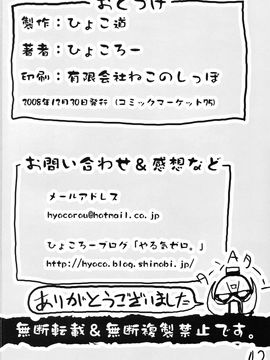 おとづけ
製作：ひよこ道
著者：ひよころー
印刷：有限会社ねこのしっぽ
2008年12月30日発行（コミックマーケット75）
お問い合わせ＆感想など
メールアドレス
hyocorou@hotmail.co.jp
ひよころーブログ「やる気ゼロ。」
http://hyoco.blog.shinobi.jp/
ありがとうございました
無断転載＆無断複製禁止です。